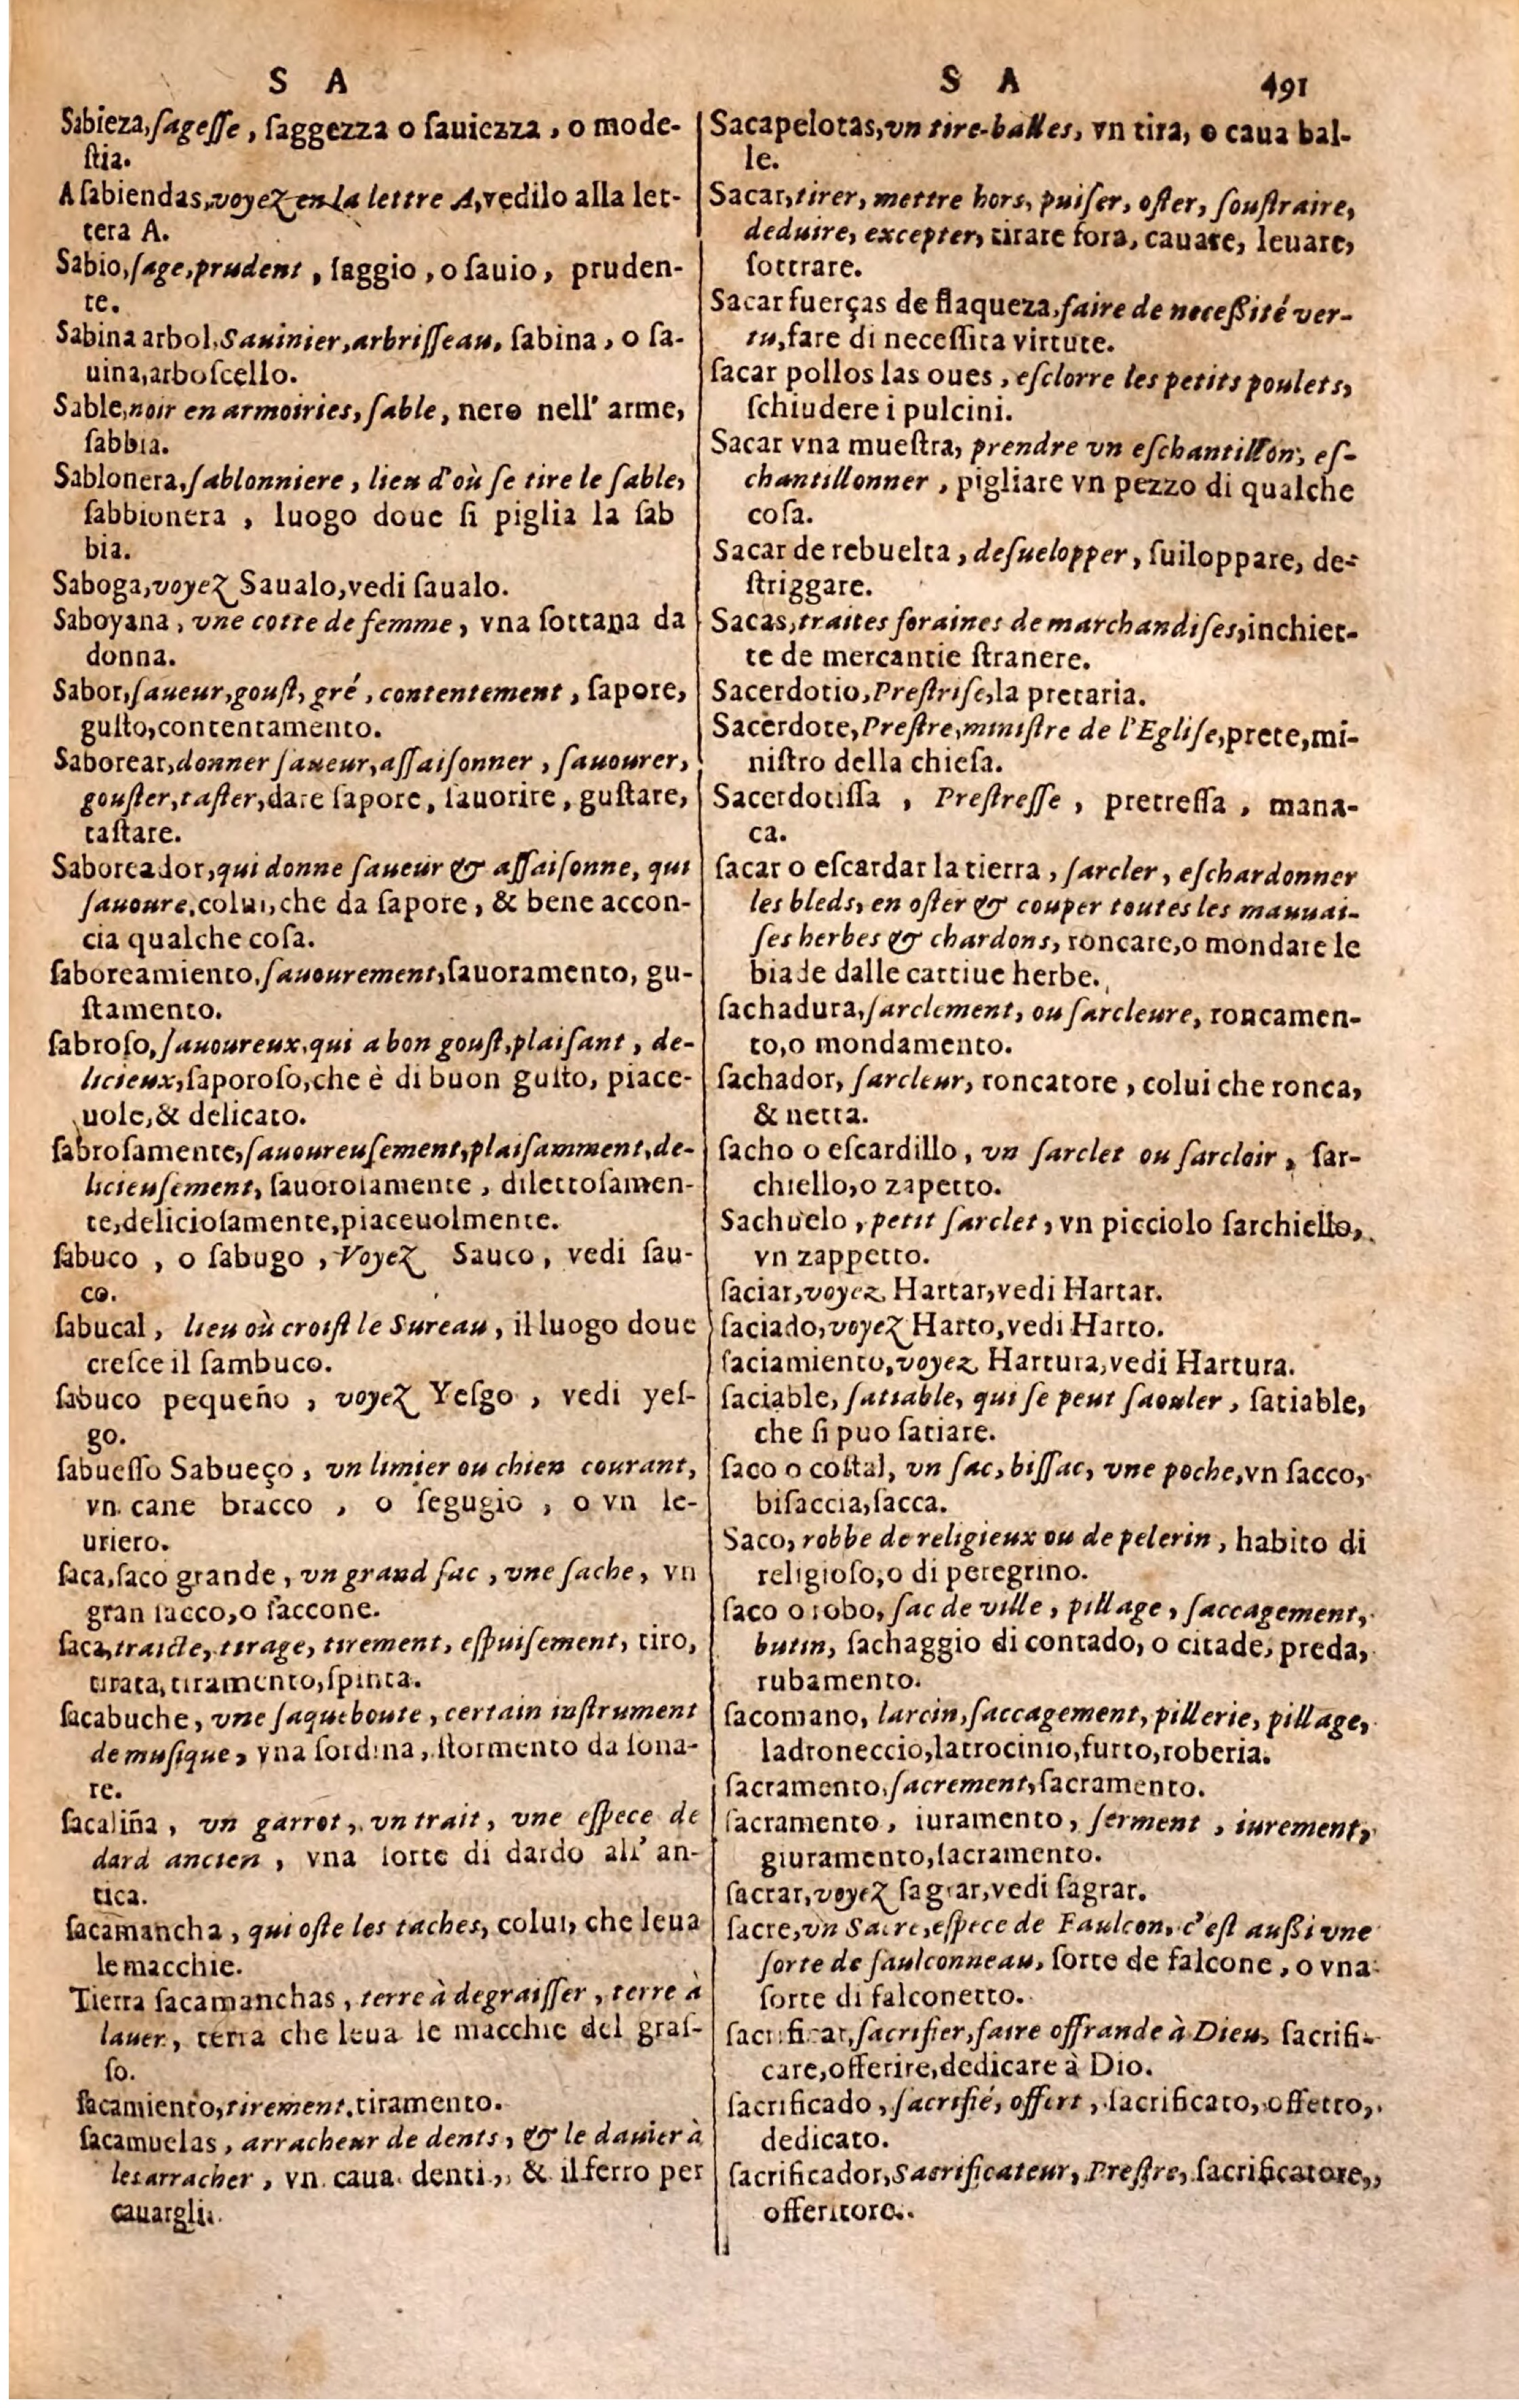 S A
Sabieza,ſageſſe, ſaggezza o ſauiezza, o mode-
ſtia.
A ſabiendas,voyez en la lettre A,vedilo alla let-
tera A.
Sabio,ſage,prudent, ſaggio, o ſauio, pruden-
te.
Sabina arbol,Sauinier,arbriſſeau, ſabina, o ſa-
uina,arboſcello.
Sable,noir en armoiries, ſable, nero nell' arme,
ſabbia.
Sablonera,ſablonniere, lieu d'où ſe tire le ſable,
ſabbionera, luogo doue ſi piglia la ſab
bia.
Saboga,voyez Saualo,vedi ſaualo.
Saboyana, vne cotte de femme, vna ſottana da
donna.
Sabor,ſaueur,gouſt, gré, contentement, ſapore,
guſto,contentamento.
Saborear,donner ſaueur,aſſaiſonner, ſauourer,
gouſter,taſter,dare ſapore, ſauorire, guſtare,
taſtare.
Saboreador,qui donne ſaueur & aſſaiſonne, qui
ſauoure,colui,che da ſapore, & bene accon-
cia qualche coſa.
ſaboreamiento,ſauourement,ſauoramento, gu-
ſtamento.
ſabroſo,ſauoureux,qui a bon gouſt,plaiſant, de-
licieux,ſaporoſo,che è di buon guſto, piace-
uole,& delicato.
ſabroſamente,ſauoureuſement,plaiſamment,de-
licieuſement, ſauoroſamente, dilettoſamen-
te,delicioſamente,piaceuolmente.
ſabuco, o ſabugo, Voyez Sauco, vedi ſau-
co.
ſabucal, lieu où croiſt le Sureau, il luogo doue
creſce il ſambuco.
ſabuco pequeño, voyez Yeſgo, vedi yeſ-
go.
ſabueſſo Sabueço, vn limier ou chien courant,
vn cane bracco, o ſegugio, o vn le-
uriero.
ſaca,ſaco grande, vn grand ſac, vne ſache, vn
gran ſacco,o ſaccone.
ſaca,traicte, tirage, tirement, eſpuiſement, tiro,
tirata,tiramento,ſpinta.
ſacabuche, vne ſaqueboute, certain inſtrument
de muſique, vna ſordina, ſtormento da ſona-
re.
ſacaliña, vn garrot, vn trait, vne eſpece de
dard ancien, vna ſorte di dardo all' an-
tica.
ſacamancha, qui oſte les taches, colui, che leua
le macchie.
Tierra ſacamanchas, terre à degraiſſer, terre à
lauer, terra che leua le macchie del graſ-
ſo.
ſacamiento,tirement,tiramento.
ſacamuelas, arracheur de dents, & le dauier à
les arracher, vn caua denti, & il ferro per
cauargli.
S A 491
Sacapelotas,vn tire-balles, vn tira, o caua bal-
le.
Sacar,tirer, mettre hors, puiſer, oſter, ſouſtraire,
deduire, excepter, tirare fora, cauare, leuare,
ſottrare.
Sacar fuerças de flaqueza,faire de neceßité ver-
tu,fare di neceſſita virtute.
ſacar pollos las oues, eſclorre les petits poulets,
ſchiudere i pulcini.
Sacar vna mueſtra, prendre vn eſchantillon, eſ-
chantillonner, pigliare vn pezzo di qualche
coſa.
Sacar de rebuelta, deſuelopper, ſuiloppare, de-
ſtriggare.
Sacas,traites foraines de marchandiſes,inchiet-
te de mercantie ſtranere.
Sacerdotio,Preſtriſe,la pretaria.
Sacerdote,Preſtre,miniſtre de l'Egliſe,prete,mi-
niſtro della chieſa.
Sacerdotiſſa, Preſtreſſe, pretreſſa, mana-
ca.
ſacar o eſcardar la tierra, ſarcler, eſchardonner
les bleds, en oſter & couper toutes les mauuai-
ſes herbes & chardons, roncare,o mondare le
biade dalle cattiue herbe.
ſachadura,ſarclement, ou ſarcleure, roncamen-
to,o mondamento.
ſachador, ſarcleur, roncatore, colui che ronca,
& netta.
ſacho o eſcardillo, vn ſarclet ou ſarcloir, ſar-
chiello,o zapetto.
Sachuelo, petit ſarclet, vn picciolo ſarchiello,
vn zappetto.
ſaciar,voyez Hartar,vedi Hartar.
ſaciado,voyez Harto,vedi Harto.
ſaciamiento,voyez Hartura,vedi Hartura.
ſaciable, ſatiable, qui ſe peut ſaouler, ſatiable,
che ſi puo ſatiare.
ſaco o coſtal, vn ſac, biſſac, vne poche,vn ſacco,
biſaccia,ſacca.
Saco, robbe de religieux ou de pelerin, habito di
religioſo,o di peregrino.
ſaco o robo, ſac de ville, pillage, ſaccagement,
butin, ſachaggio di contado, o citade, preda,
rubamento.
ſacomano, larcin,ſaccagement, pillerie, pillage,
ladroneccio,latrocinio,furto,roberia.
ſacramento,ſacrement,ſacramento.
ſacramento, iuramento, ſerment, iurement,
giuramento,ſacramento.
ſacrar,voyez ſagrar,vedi ſagrar.
ſacre,vn Sacre,eſpece de Faulcon, c'eſt außi vne
ſorte de faulconneau, ſorte de falcone, o vna
ſorte di falconetto.
ſacrificar,ſacrifier,faire offrande à Dieu, ſacrifi-
care,offerire,dedicare à Dio.
ſacrificado, ſacrifié, offert, ſacrificato, offerto,
dedicato.
ſacrificador,Sacrificateur, Preſtre, ſacrificatore,
offeritore.